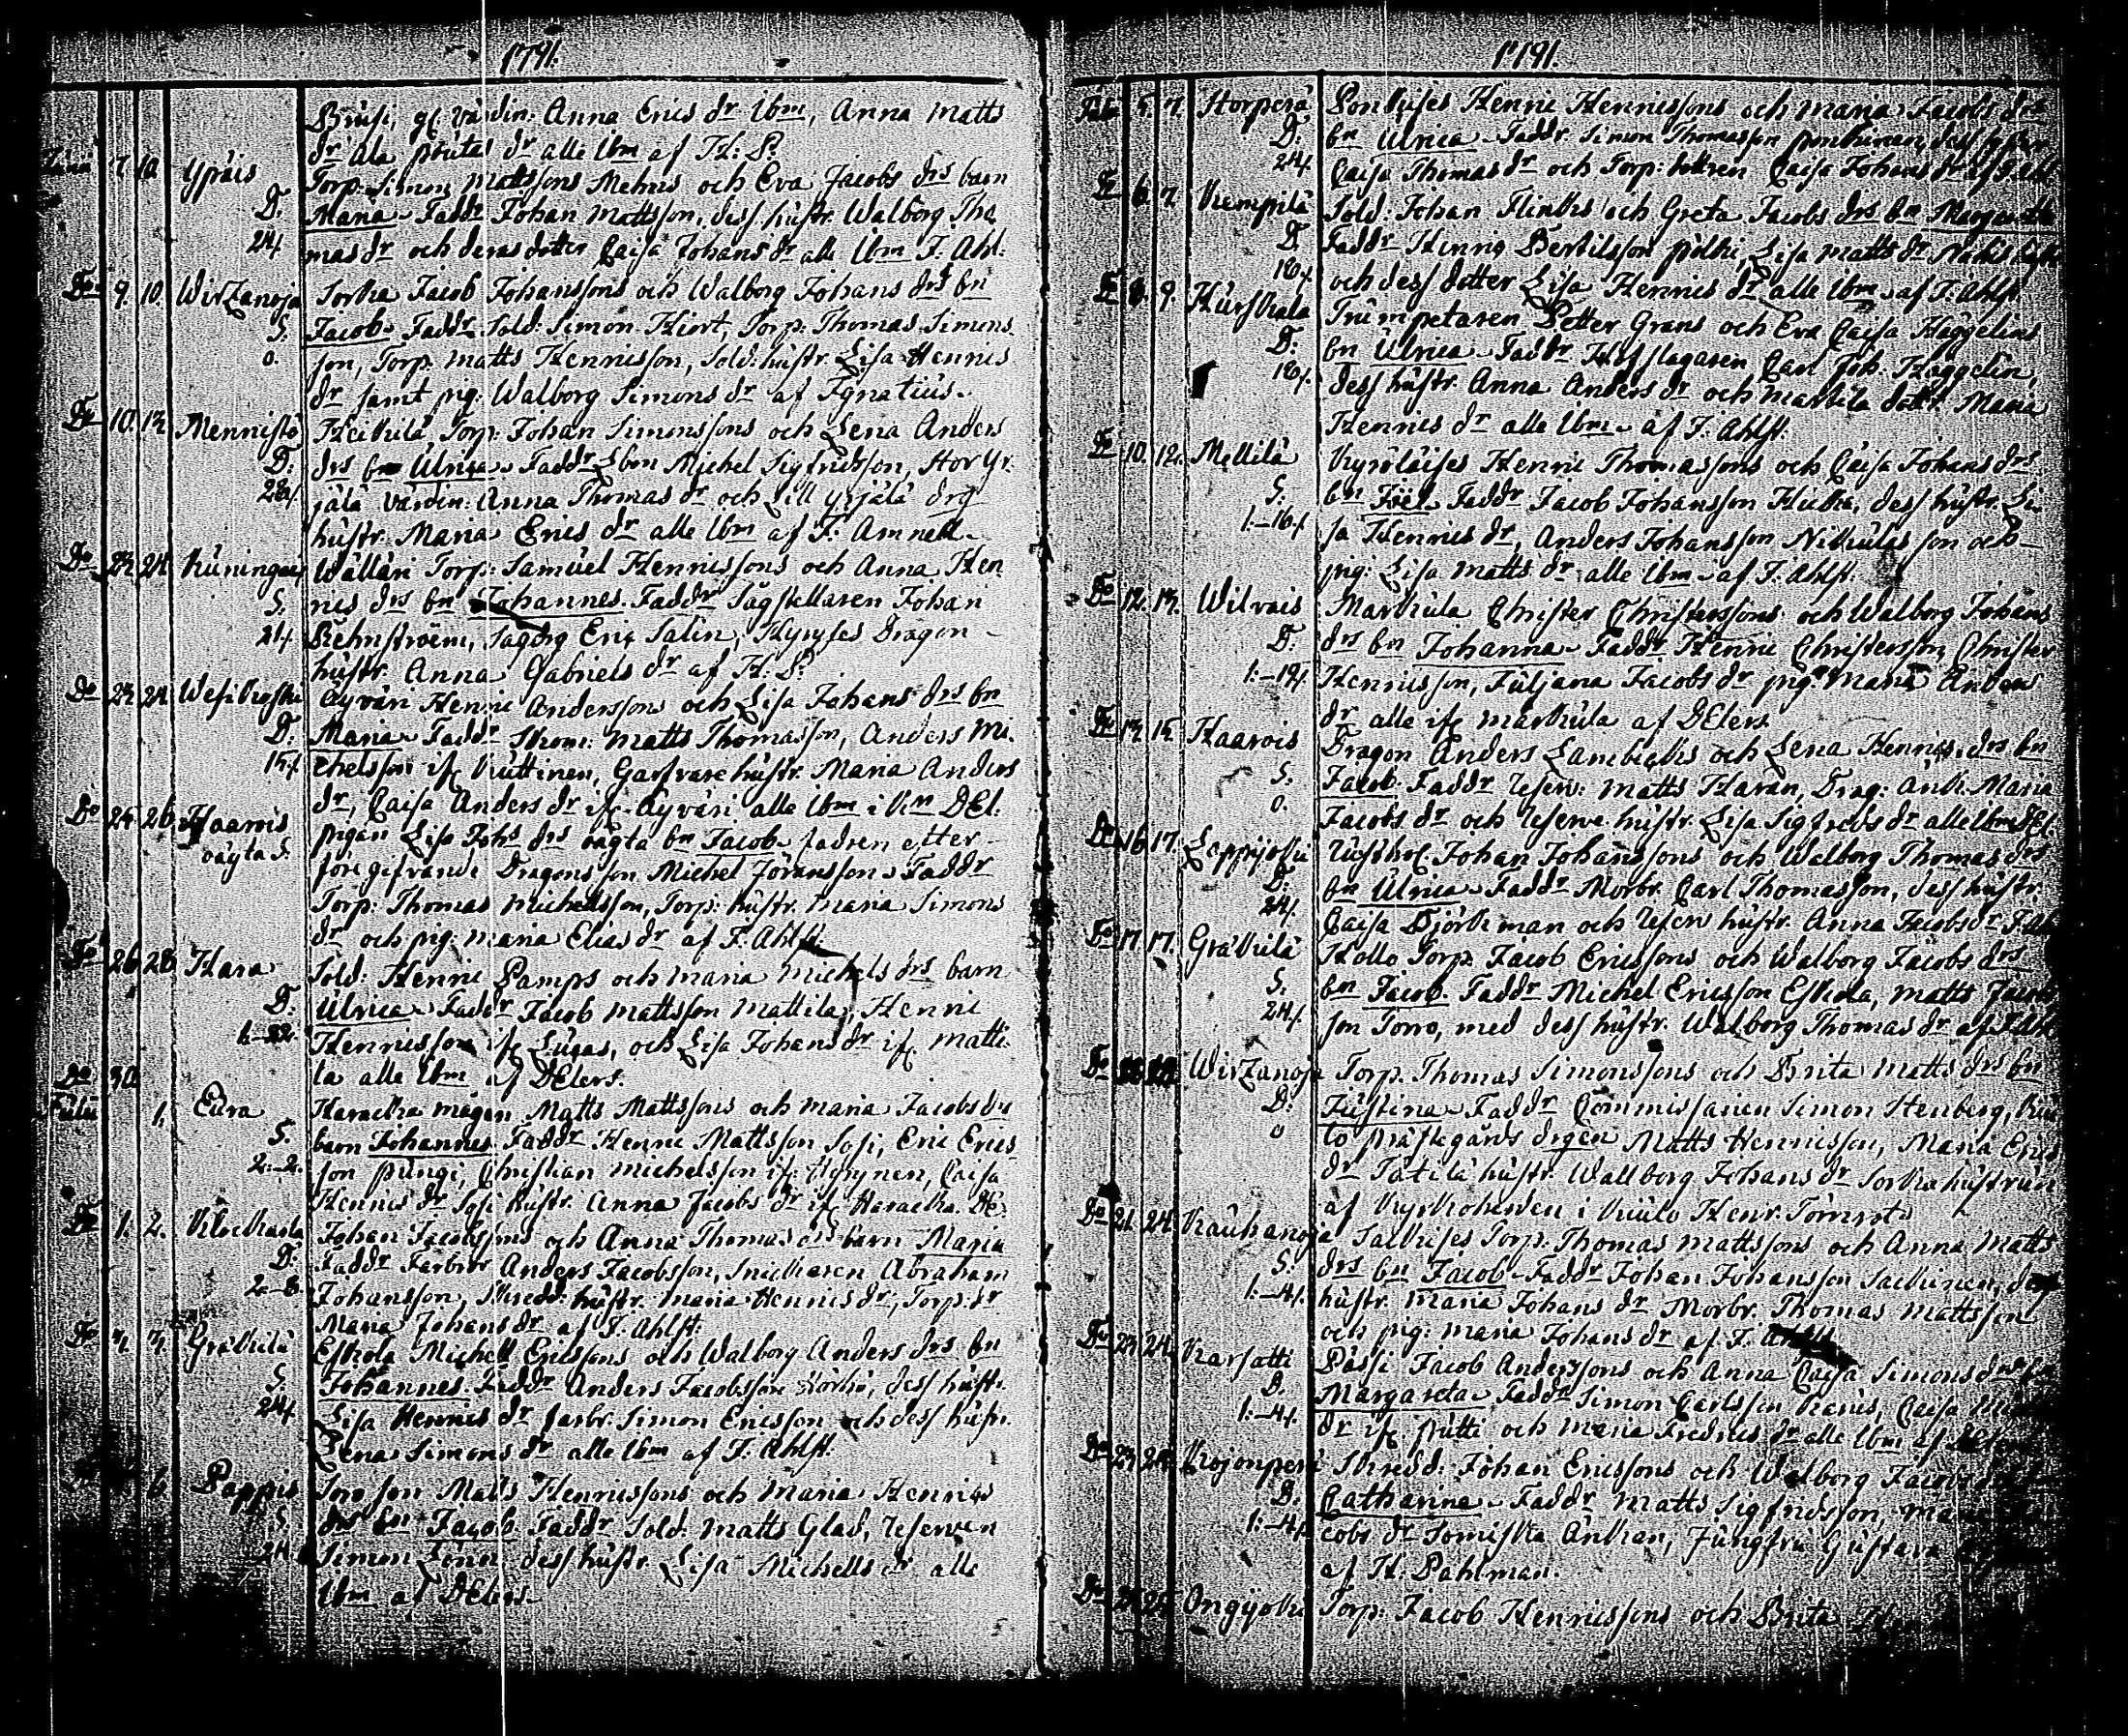 1791.
Brusi, gl. värdin: Anna Erics dr ibm, Anna Matts
dr Ala prutas dr alle ibm af H: P.
Junii 7. 10. Ypäis Torp: Simon Mattssons Mehnis och Eva Jacobs drs barn
D. Maria Faddr Johan Mattsson, dess hustr. Walborg Tho
24. mas dr och deras dotter Caisa Johans dr alle ibm F. Ahl.
Do 9. 10. Wirtzanoja Sorkka Jacob Johanssons och Walborg Johans drs bn
S. Jacob Faddr Sold: Simon Hiort, Torp: Thomas Simons
0. son, Torp: Matts Henricsson, Sold: hustr. Lisa Henrics
dr samt pig: Walborg Simons dr af Ignatius.
Do 10. 13. Mennistö Heikkilä Torp: Johan Simonssons och Lena Anders
D. drs bn Ulrica Faddr Michel Sigfridsson, Stor Yr
jälä värdin: Anna Thomas dr och Lill Yrjälä drg
hustr. Maria Erics dr alle ibm af F. Amnell
Do 23 24 Kuningais Wälläri Torp: Samuel Henricssons och Anna Hen
S. rics drs bn Johannes. Faddr Sågstellaren Johan
24. Rehnström, Sagdrg Eric Salin, Hyryses Dragon
hustr. Anna Gabriels dr af H. P.
Do 23 24 Wesikoski Äyväri Henric Anderssons och Lisa Johans drs bn
D. Maria Faddr Skom: Matts Thomasson, Anders Mi
chelsson ifr. Kuttinen, Garfvare hustr. Maria Anders
dr, Caisa Anders dr ifr. Äyväri alle ibm i Kn DEl.
Do 25 26 Haarois pigan Lisa Johs drs oägta bn Jacob fadren efter
oägta S. föregifvande Dragons son Michel Göransson Faddr
Torp: Thomas Michelsson, Torp: hustr. Maria Simons
dr och pig: Maria Elias dr af F. Ahlst
Do 26 28 Hara Sold: Henric Pamps och Maria Michels drs barn
D. Ulrica Faddr Jacob Mattsson Mattila, Henric
Henricsson ifr. Lucas, och Lisa Johans dr ifr. Matti
Do 30. la alle ibm af DElers.
Julii 1. Eura Haracka mågen Matts Mattssons och Maria Jacobs drs
S. barn Johannes Faddr Henric Mattsson Sosi, Eric Erics
2.–2. son Pungi, Christian Michelsson ifr. Caisa
Henrics dr Sosi hustr. Anna Jacobs dr ifr. Haracka. DE.
Do 1. 2. Johan Jacobssons och Anna Thomas drs barn Maria
D. Faddr Farbror Anders Jacobsson, Snickaren Abraham
2.–8. Johansson, Skredd: hustr. Maria Henrics dr, Torp: dr
Maria Johans dr af F. Ahlst.
Do 3. 3. Gräkkilä Eskola Michell Ericssons och Walborg Anders drs bn
S. Johannes. Faddr Anders Jacobsson dess hustr.
24. Lisa Henrics dr farbr. Simon Ericsson och dess hustr.
Lena Simons dr alle ibm af F. Ahlst.
6. Pappis Matts Henricssons och Maria Henrics
S. drs bn Jacob Faddr Sold: Matts Glad, Reserven
24. Simon Lönn, dess hustr. Lisa Michells dr alle
ibm af DElers.
1791.
Julii 5. 7. Storperä Ponkises Henric Henricssons och Maria Jacobs drs
D. bn Ulrica Faddr. Simon Thomasson Ponkinen, dess syster
24. Caisa Thomas dr och Torp: dottren Caisa Johans dr af F. Ahl
Do 6. 7. Kempilä Sold: Johan Flinks och Greta Jacobs drs bn Margareta
D. Faddr Henric Bertilsson Pölki, Lisa Matts dr
16. och dess dotter Lisa Henrics dr alle ibm af F. Ahlst
Do 8. 9. Kurskala Trumpetaren Petter Grans och Eva Caisa Häggelins
D. bn Ulrica Faddr Hofslagaren Carl Joh. Häggelin,
16. dess hustr. Anna Anders dr och Marttila dottr. Maria
Henrics dr alle ibm af F. Ahlst.
Do 10. 12. Mellilä Kyröläises Henric Thomassons och Caisa Johans drs
S. bn Faddr Jacob Johansson dess hustr. Li
1.–16. sa Henrics dr, Anders Johansson Nikkulas son och
pig: Lisa Matts dr alle ibm af F. Ahlst.
Do 12. 13. Wilvais Markkula Christer Christerssons och Walborg Johans
D. drs bn Johanna Faddr Henric Christersson, Christer
Henricsson, Juliana Jacobs dr pig: Maria Anders
dr alle ifr Markkula af DElers
Do 13. 15. Haarois Dragon Anders Lambecks och Lena Henrics drs bn
S. Jacob Faddr Reserv: Matts Haran, Drag: änk. Maria
0. Jacobs dr och Reserve hustr. Lisa Sigfreds dr alle ibm DEl
Do 16 17. Loppijoki Rusthol: Johan Johanssons och Walborg Thomas drs
D. bn Ulrica Faddr Morbr. Carl Thomasson, dess hustr
24. Caisa Björkman och Reserv hustr. Anna Jacobs dr F. Ah
Do 17. 17. Gräkkilä Kollo Torp: Jacob Ericssons och Walborg Jacobs drs
S. bn Jacob. Faddr Michel Ericsson Eskola, Matts Jacobs
24. son Torro, med dess hustr. Walborg Thomas dr af F. Ahl
Do Wirtzanoja Torp: Thomas Simonssons och Brita Matts drs bn
D. Justina Faddr Commissarien Simon Stenberg,
0 lo prästegårds drgen Matts Henricsson, Maria Erics
dr Tätilä hustr. Wallborg Johans dr Sorkka hustrun
af Kyrkoherden i Kiulo Henr. Törnrot
Do 21. 24. Kauhanoja Salkises Torp: Thomas Mattssons och Anna Matts
S. drs bn Jacob Faddr Johan Johansson Salkinen, dess
1.–4. hustr. Maria Johans dr Morbr. Thomas Mattsson
och pig: Maria Johans dr af F. Ahlst
Do 23 24. Karsatti Pässi Jacob Anderssons och Anna Caisa Simons drs bn
D. Margareta Faddr Simon Carlsson Caisa
1.–4. dr ifr. Putti och Maria Fredrics dr alle ibm af
Do 23 24 Kojonperä Skredd: Johan Ericssons och Walborg Jacobs
D. Catharina Faddr Matts Sigfridsson,
1.–4. cobs dr Somiska Änkan, Jungfru Gustava
af H. Pahlman.
Do Ongijoki Torp: Jacob Henricssons och Brita